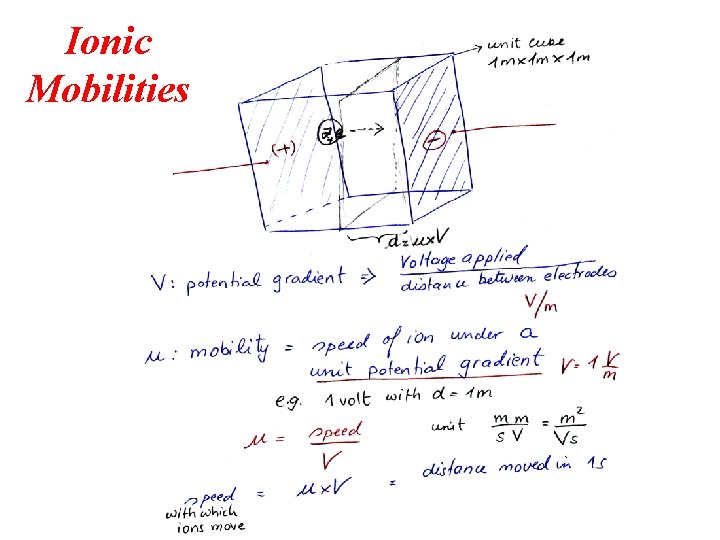 Ionic
Mobilities
unit cube
1m×1m×1m
(+)
−
d=u×V
V: potential gradient => Voltage applied
distance between electrodes
V/m
u: mobility = speed of ion under a
unit potential gradient V=1 V/m
e.g. 1 volt with d=1m
u = speed/V unit m m/s V = m²/Vs
speed = u×V = distance moved in 1s
with which
ions move